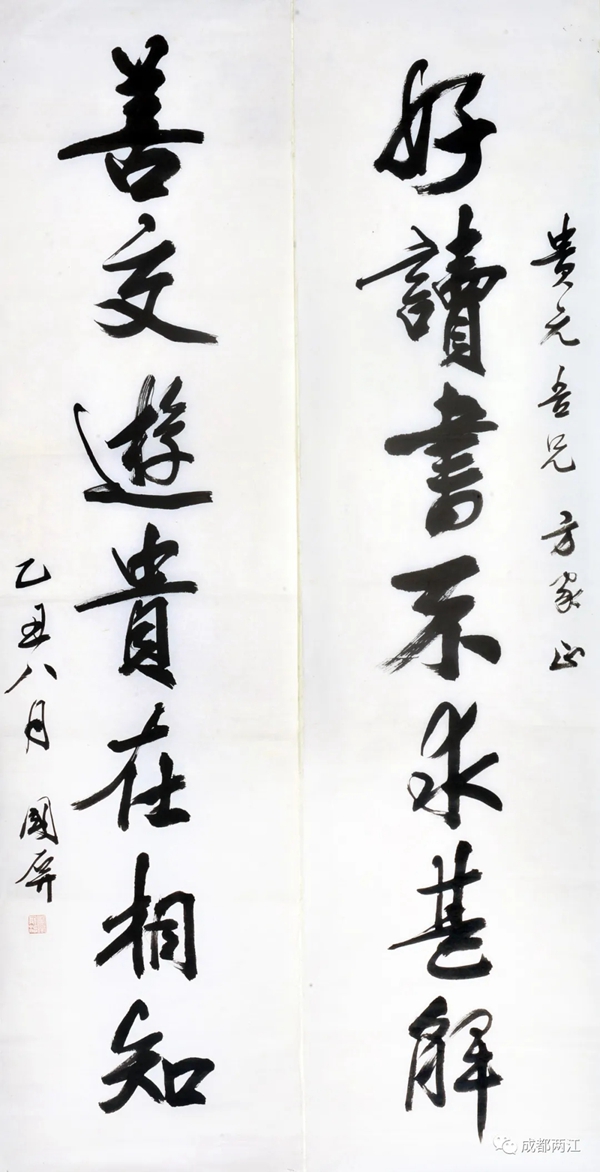 貴元吾兄 方家正
好讀書不求甚解
善交遊貴在相知
乙丑八月 國屏
成都两江